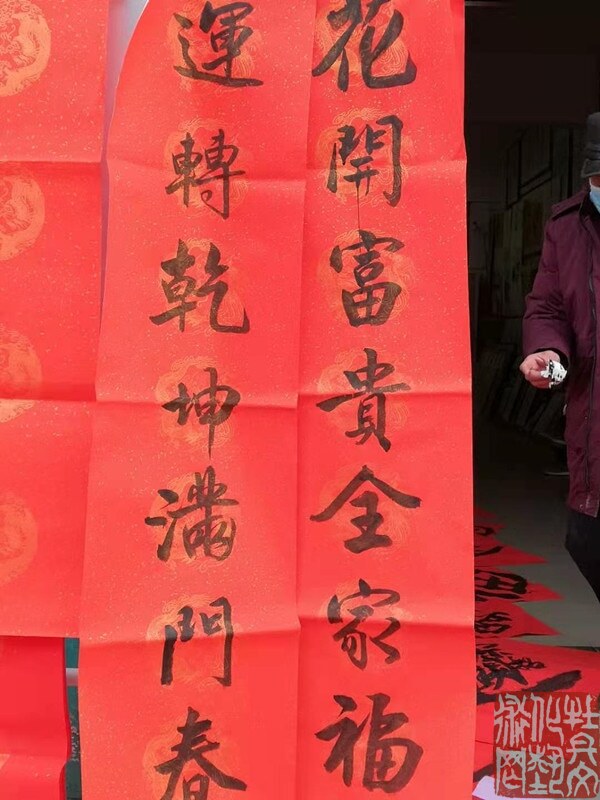 花開富貴全家福
運轉乾坤滿門春